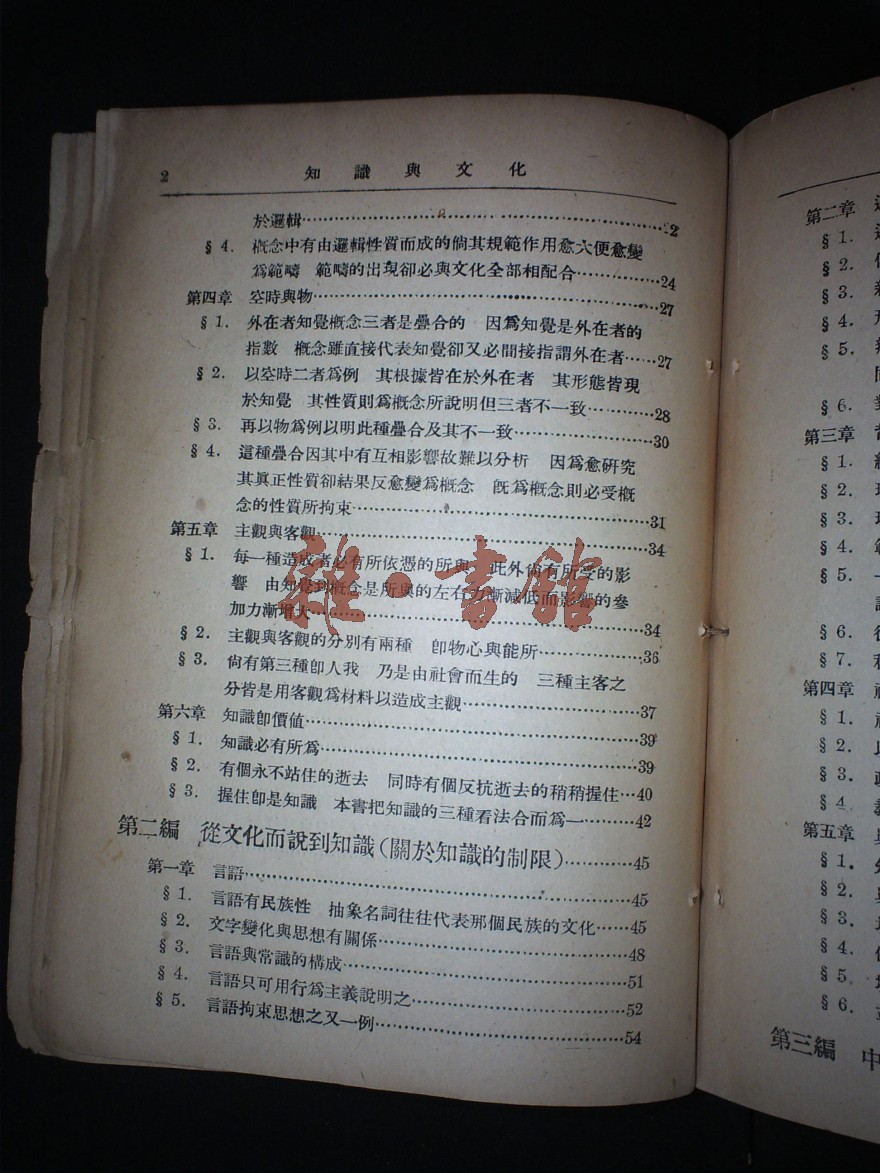 2 知識與文化
於邏輯……2
§ 4. 概念中有由邏輯性質而成的倘其規範作用愈大便愈變
爲範疇 範疇的出現卻必與文化全部相配合……24
第四章 空時與物……27
§ 1. 外在者知覺概念三者是疊合的 因爲知覺是外在者的
指數 概念雖直接代表知覺卻又必間接指謂外在者……27
§ 2. 以空時二者爲例 其根據皆在於外在者 其形態皆現
於知覺 其性質則爲概念所說明但三者不一致……28
§ 3. 再以物爲例以明此種疊合及其不一致……30
§ 4. 這種疊合因其中有互相影響故難以分析 因爲愈硏究
其眞正性質卻結果反愈變爲概念 旣爲概念則必受概
念的性質所拘束……31
第五章 主觀與客觀……34
§ 1. 每一種造成者必有所依憑的所與 此外倘有所受的影
響 由知覺到概念是所與的左右力漸減低而影響的參
加力漸增大……34
§ 2. 主觀與客觀的分別有兩種 卽物心與能所……36
§ 3. 尙有第三種卽人我 乃是由社會而生的 三種主客之
分皆是用客觀爲材料以造成主觀……37
第六章 知識卽價値……39
§ 1. 知識必有所爲……39
§ 2. 有個永不站住的逝去 同時有個反抗逝去的稍稍握住…40
§ 3. 握住卽是知識 本書把知識的三種看法合而爲一……42
第二編 從文化而說到知識(關於知識的制限)……45
第一章 言語……45
§ 1. 言語有民族性 抽象名詞往往代表那個民族的文化……45
§ 2. 文字變化與思想有關係……48
§ 3. 言語與常識的構成……51
§ 4. 言語只可用行爲主義說明之……52
§ 5. 言語拘束思想之又一例……54
雜·書館
第二章
§ 1.
§ 2.
§ 3.
§ 4.
§ 5.
§ 6.
第三章
§ 1.
§ 2.
§ 3.
§ 4.
§ 5.
§ 6.
§ 7.
第四章
§ 1.
§ 2.
§ 3.
§ 4.
第五章
§ 1.
§ 2.
§ 3.
§ 4.
§ 5.
§ 6.
第三編 中